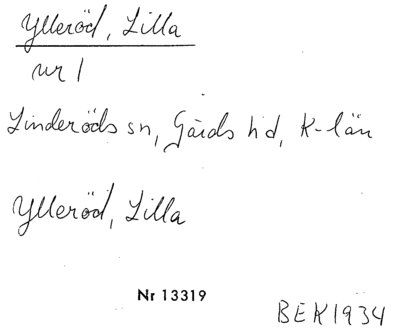 Ylleröd, Lilla
nr 1
Linderöds sn, Gärds hd, K-län
Ylleröd, Lilla
Nr 13319
BEK1934